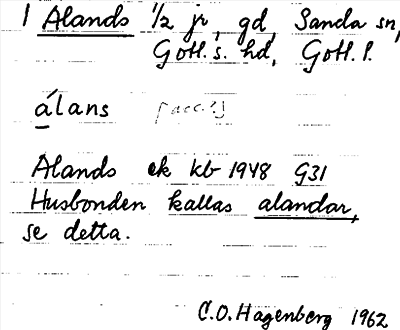 1 Alands 1/2 jr, gd, Sanda sn,
Gotl. s. hd, Gotl. l.
álans [acc.!]
Alands ek kb 1948 G31
Husbonden kallas alandar,
se detta.
C.O. Hagenberg 1962